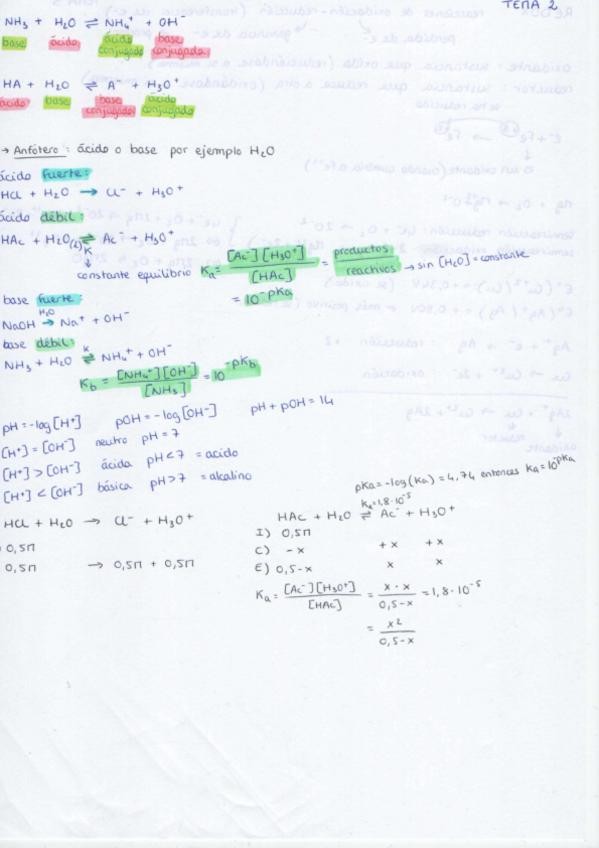 TEMA 2
NH₃ + H₂O ⇌ NH₄⁺ + OH⁻
base ácido ácido conjugado base conjugada
HA + H₂O ⇌ A⁻ + H₃O⁺
ácido base base conjugada ácido conjugado
→ Anfótero: ácido o base por ejemplo H₂O
ácido fuerte:
HCl + H₂O → Cl⁻ + H₃O⁺
ácido débil:
HAc + H₂O(l) ⇌ Ac⁻ + H₃O⁺
K
constante equilibrio Ka = [Ac⁻][H₃O⁺] / [HAc] = productos / reactivos → sin [H₂O] = constante
= 10^-pKa
base fuerte:
NaOH →(H₂O) Na⁺ + OH⁻
base débil:
NH₃ + H₂O ⇌(K) NH₄⁺ + OH⁻
Kb = [NH₄⁺][OH⁻] / [NH₃] = 10^-pKb
pH = -log[H⁺] pOH = -log[OH⁻] pH + pOH = 14
[H⁺] = [OH⁻] neutro pH = 7
[H⁺] > [OH⁻] ácida pH < 7 = acido
[H⁺] < [OH⁻] básica pH > 7 = alcalino
pKa = -log(Ka) = 4,74 entonces Ka = 10^pKa
Ka = 1,8·10⁻⁵
HCl + H₂O → Cl⁻ + H₃O⁺
0,5M
0,5M → 0,5M + 0,5M
HAc + H₂O ⇌ Ac⁻ + H₃O⁺
I) 0,5M
C) -x +x +x
E) 0,5-x x x
Ka = [Ac⁻][H₃O⁺] / [HAc] = x·x / 0,5-x = 1,8·10⁻⁵
= x² / 0,5-x